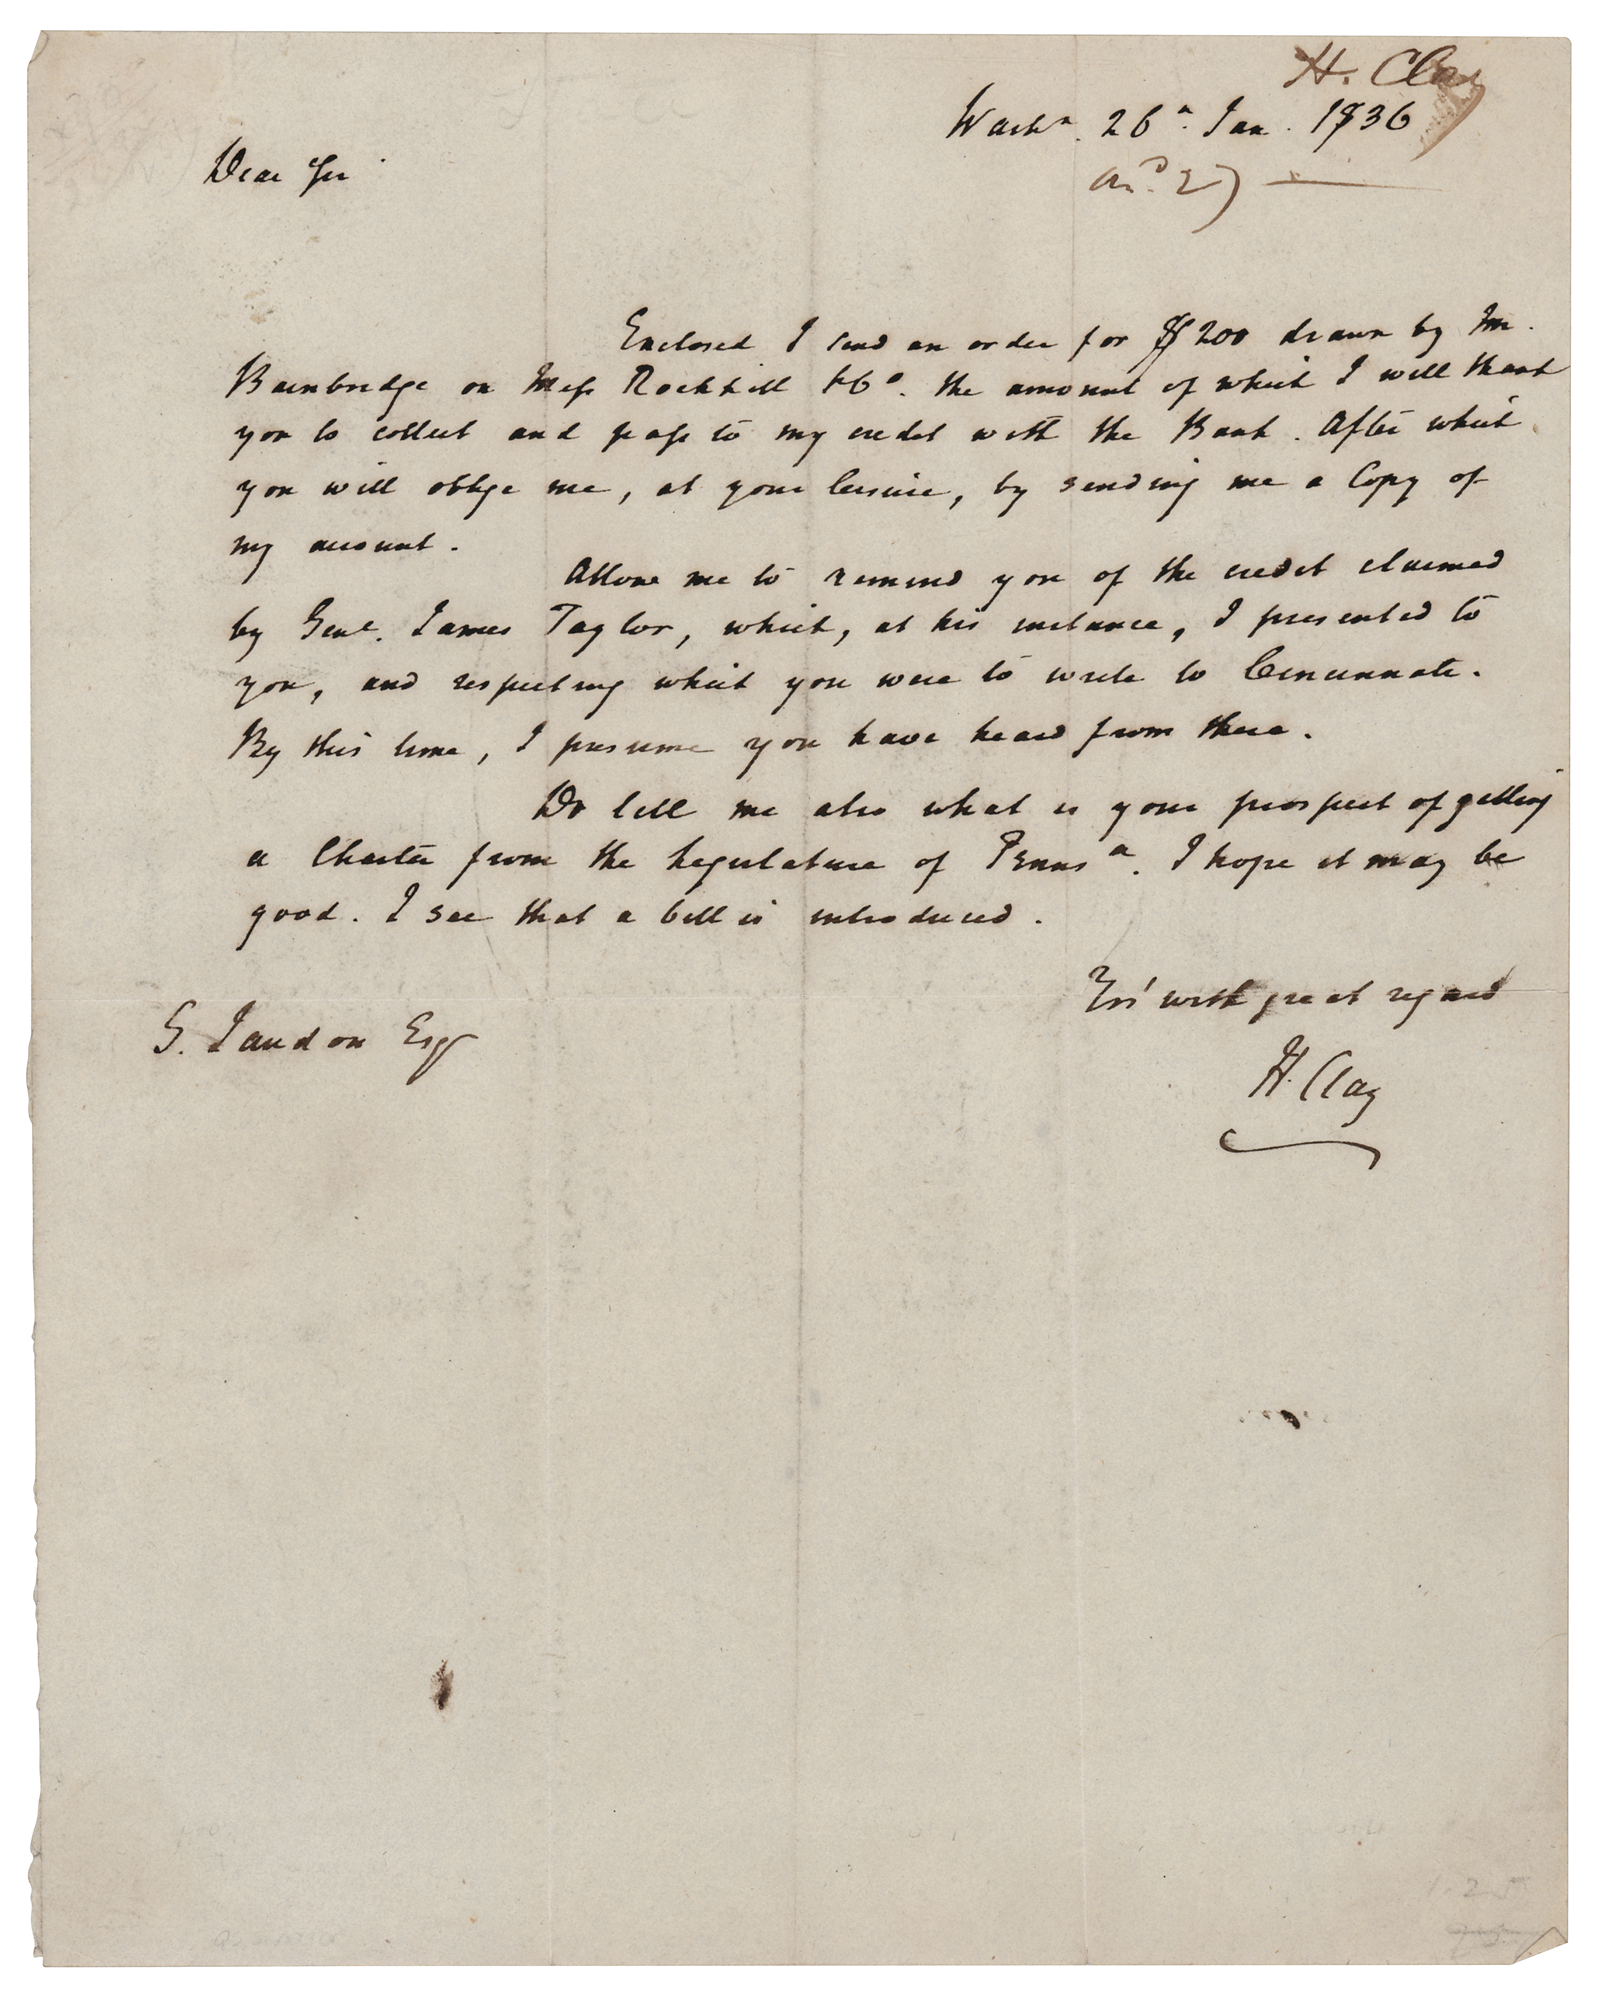 H. Clay
Washn. 26h. Jan. 1836
And. 27
Dear Sir
Enclosed I send an order for $200 drawn by Mr.
Bainbridge on Mess Rockhill & Co. the amount of which I will thank
you to collect and pass to my credit with the Bank. After which
you will oblige me, at your leisure, by sending me a Copy of
my account.
Allow me to remind you of the credit claimed
by Genl. James Taylor, which, at his instance, I presented to
you, and respecting which you were to write to Cincinnati.
By this time, I presume you have heard from there.
Do tell me also what is your prospect of getting
a Charter from the Legislature of Pennsa. I hope it may be
good. I see that a bill is introduced.
Yrs' with great regard
S. Jaudon Esqr
H. Clay